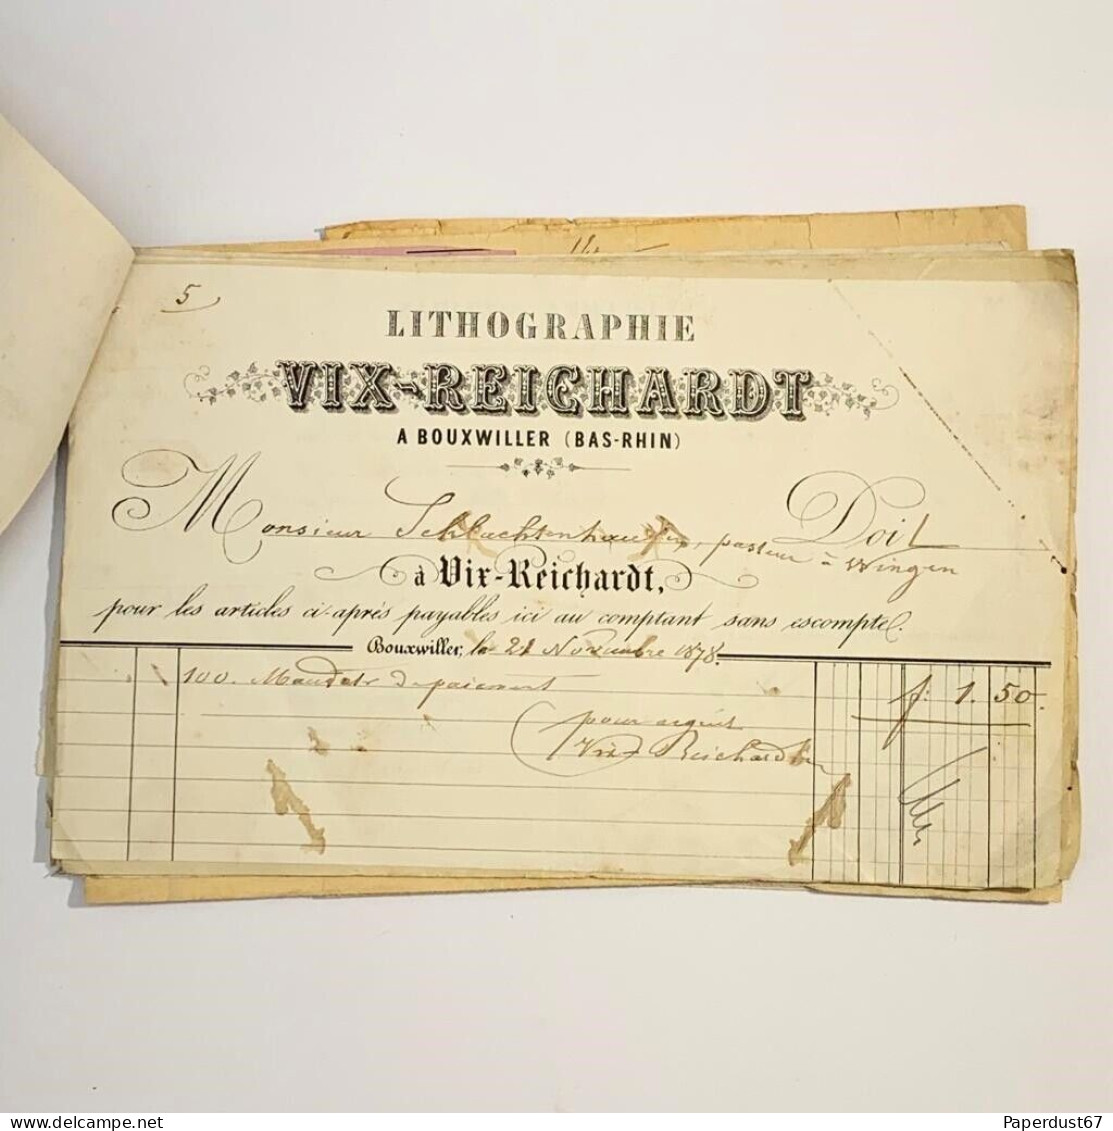 5
LITHOGRAPHIE
VIX-REICHARDT
A BOUXWILLER (BAS-RHIN)
Monsieur Schlachtenhaufen, pasteur à Wingen Doit
à Vix-Reichardt,
pour les articles ci-après payables ici au comptant sans escompte.
Bouxwiller, le 21 Novembre 1878.
100. Mandats de paiement f: 1. 50.
pour acquit
Vix Reichardt
delcampe.net
Paperdust67